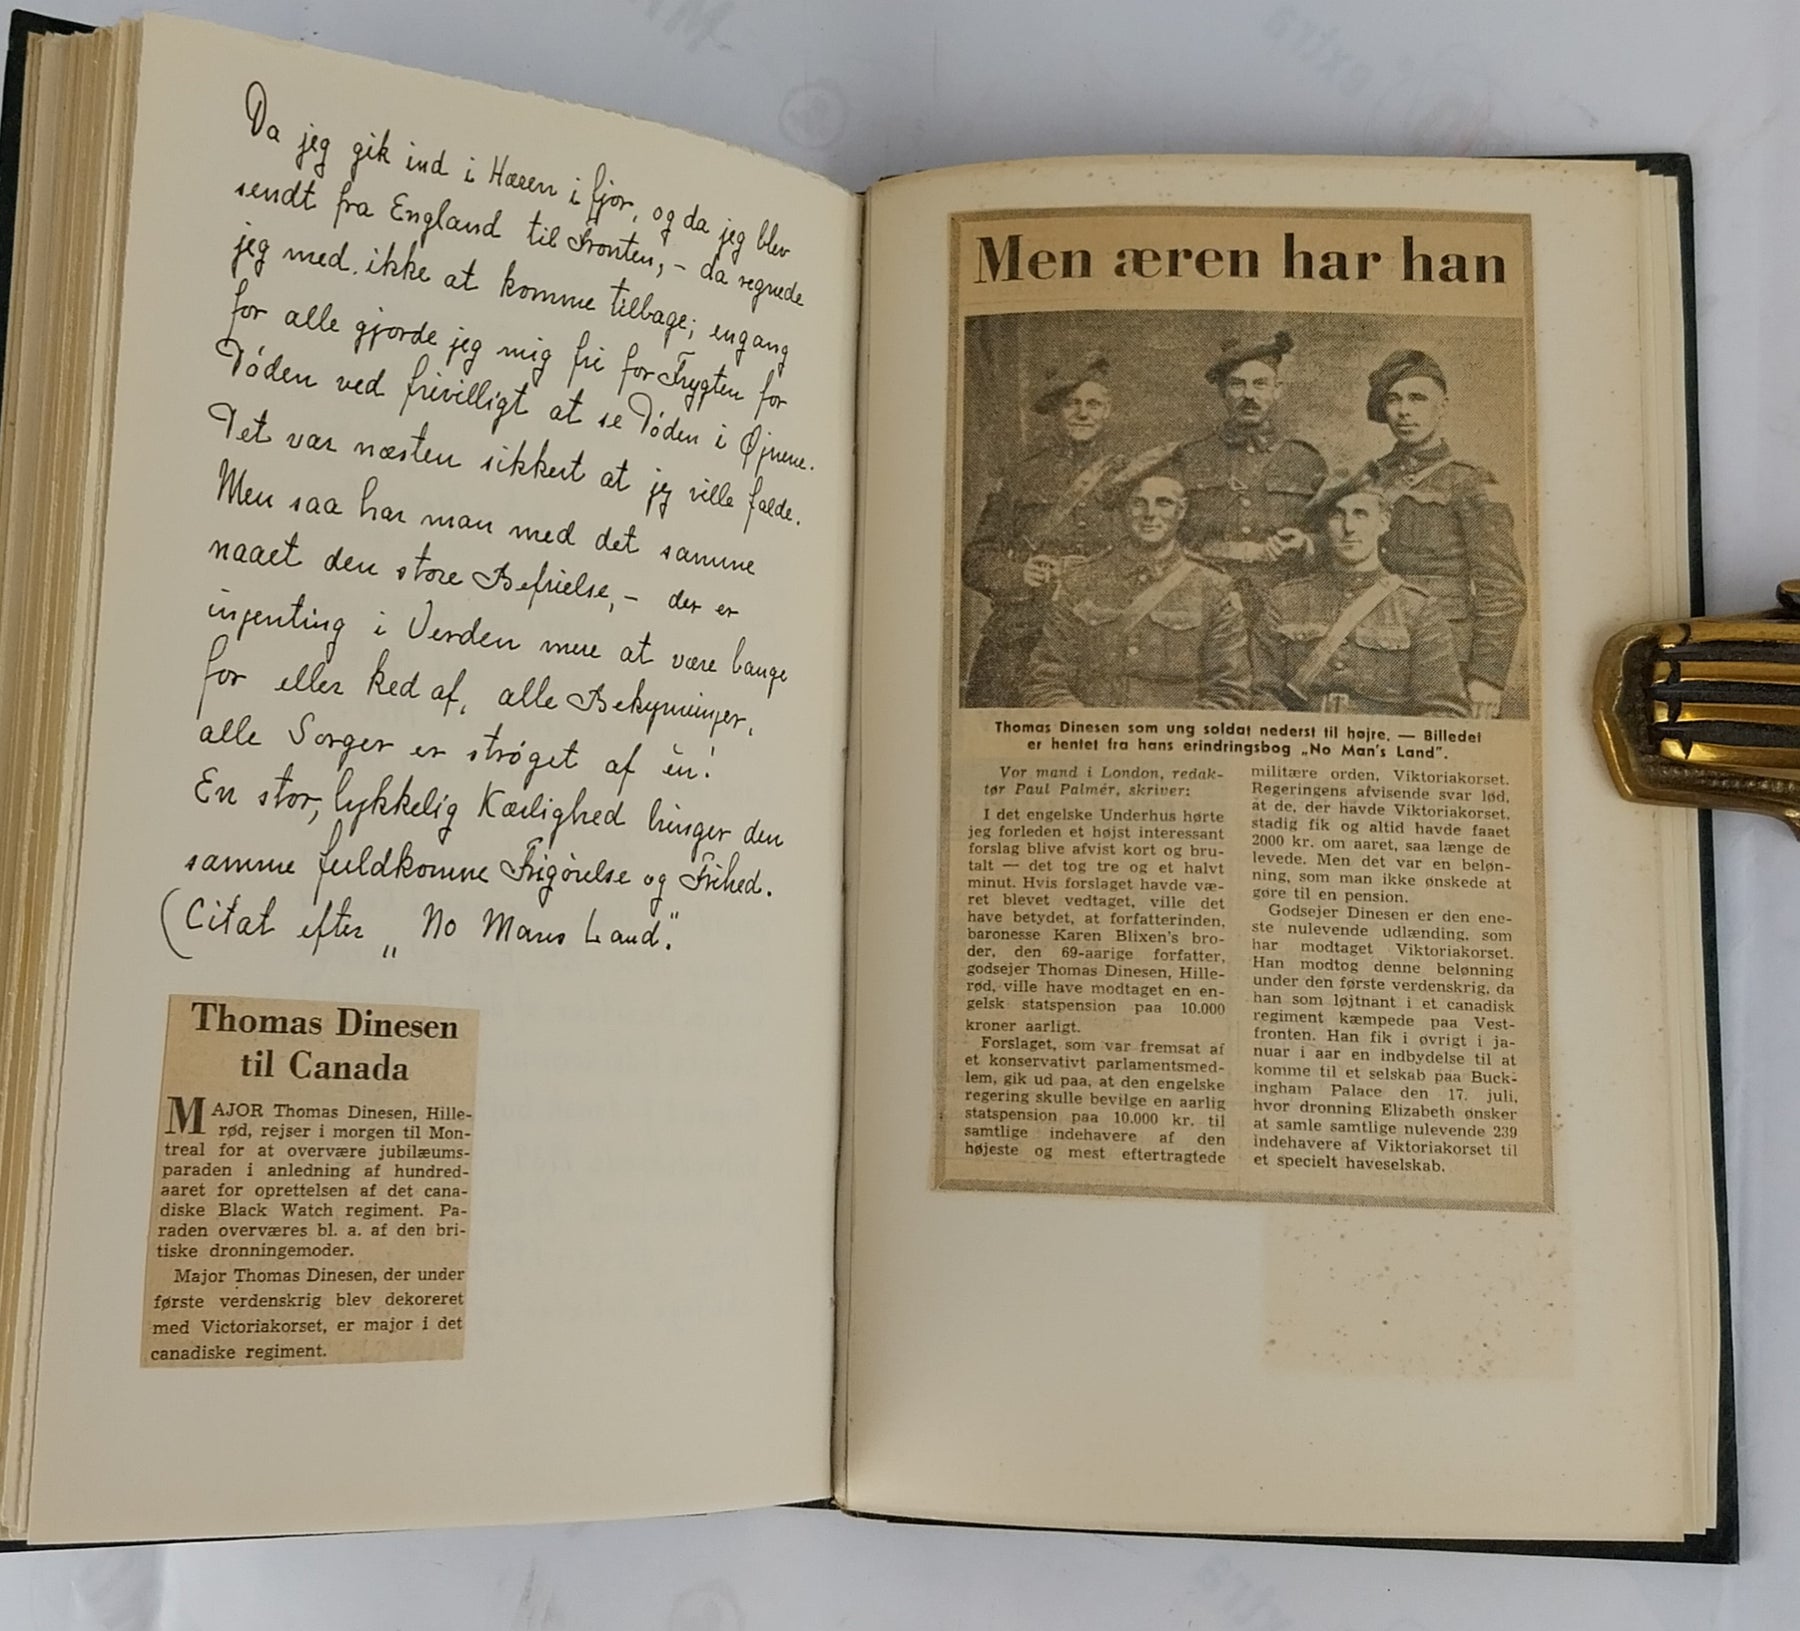 Da jeg gik ind i Hæren i fjor, og da jeg blev
sendt fra England til Fronten, – da regnede
jeg med ikke at komme tilbage; engang
for alle gjorde jeg mig fri for Frygten for
Døden ved frivilligt at se Døden i Øjnene.
Det var næsten sikkert at jeg ville falde.
Men saa har man med det samme
naaet den store Befrielse, – der er
ingenting i Verden mere at være bange
for eller ked af, alle Bekymringer,
alle Sorger er strøget af èn!
En stor, lykkelig Kærlighed bringer den
samme fuldkomne Frigørelse og Frihed.
(Citat efter „No Mans Land".
Thomas Dinesen
til Canada
MAJOR Thomas Dinesen, Hille-
rød, rejser i morgen til Mon-
treal for at overvære jubilæums-
paraden i anledning af hundred-
aaret for oprettelsen af det cana-
diske Black Watch regiment. Pa-
raden overværes bl. a. af den bri-
tiske dronningemoder.
Major Thomas Dinesen, der under
første verdenskrig blev dekoreret
med Victoriakorset, er major i det
canadiske regiment.
Men æren har han
Thomas Dinesen som ung soldat nederst til højre. — Billedet
er hentet fra hans erindringsbog „No Man's Land".
Vor mand i London, redak-
tør Paul Palmér, skriver:
I det engelske Underhus hørte
jeg forleden et højst interessant
forslag blive afvist kort og bru-
talt — det tog tre og et halvt
minut. Hvis forslaget havde væ-
ret blevet vedtaget, ville det
have betydet, at forfatterinden,
baronesse Karen Blixen's bro-
der, den 69-aarige forfatter,
godsejer Thomas Dinesen, Hille-
rød, ville have modtaget en en-
gelsk statspension paa 10.000
kroner aarligt.
Forslaget, som var fremsat af
et konservativt parlamentsmed-
lem, gik ud paa, at den engelske
regering skulle bevilge en aarlig
statspension paa 10.000 kr. til
samtlige indehavere af den
højeste og mest eftertragtede
militære orden, Viktoriakorset.
Regeringens afvisende svar lød,
at de, der havde Viktoriakorset,
stadig fik og altid havde faaet
2000 kr. om aaret, saa længe de
levede. Men det var en beløn-
ning, som man ikke ønskede at
gøre til en pension.
Godsejer Dinesen er den ene-
ste nulevende udlænding, som
har modtaget Viktoriakorset.
Han modtog denne belønning
under den første verdenskrig, da
han som løjtnant i et canadisk
regiment kæmpede paa Vest-
fronten. Han fik i øvrigt i ja-
nuar i aar en indbydelse til at
komme til et selskab paa Buck-
ingham Palace den 17. juli,
hvor dronning Elizabeth ønsker
at samle samtlige nulevende 239
indehavere af Viktoriakorset til
et specielt haveselskab.